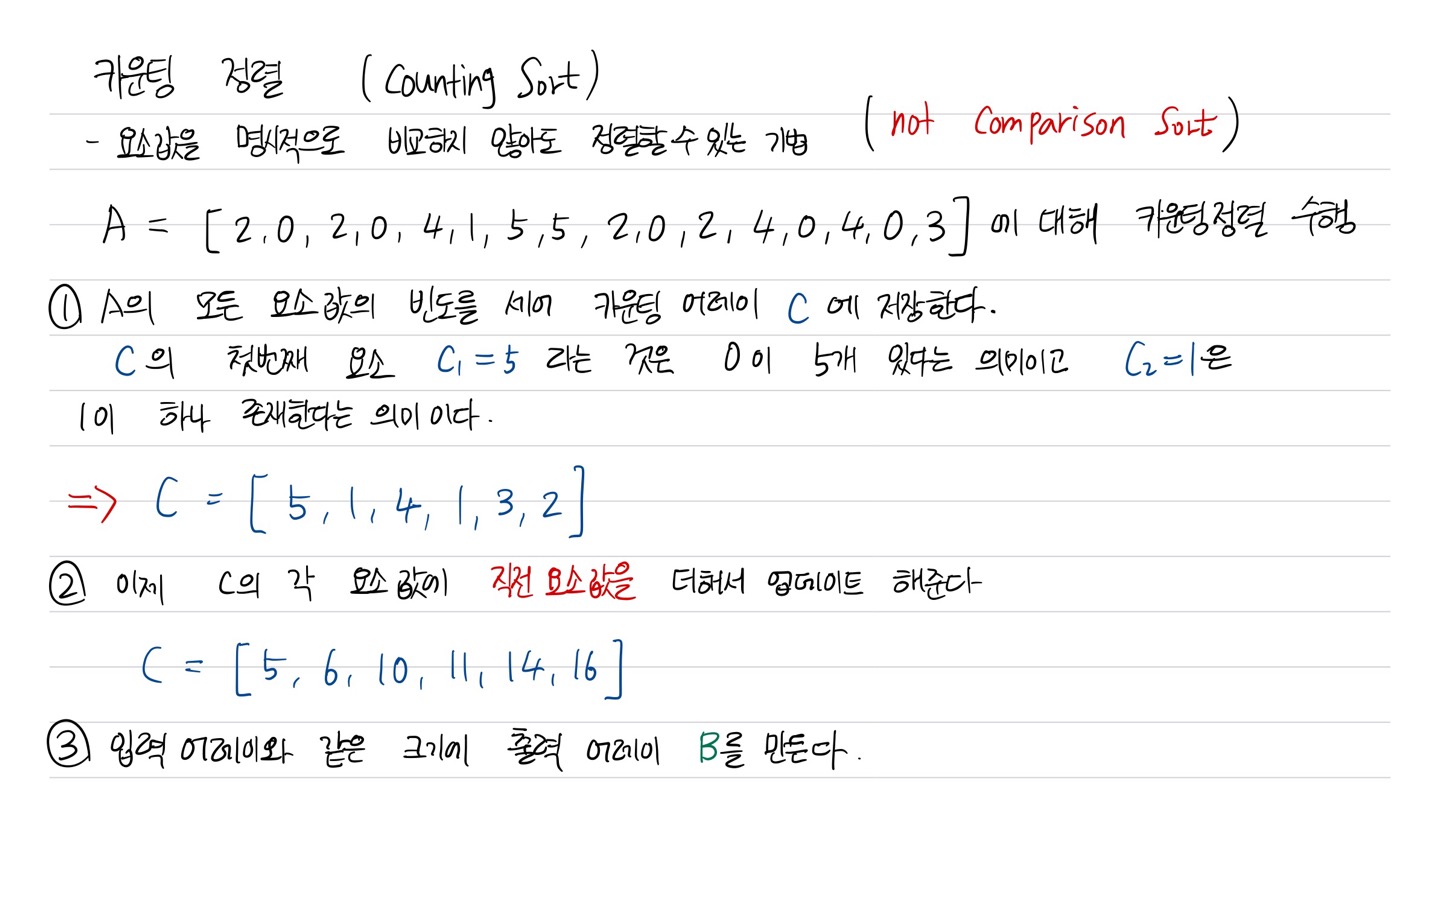 카운팅 정렬 (Counting Sort)
- 요소값을 명시적으로 비교하지 않아도 정렬할 수 있는 기법 (not Comparison Sort)
A = [2,0, 2,0, 4,1, 5,5, 2,0,2, 4,0,4,0,3] 에 대해 카운팅정렬 수행
① A의 모든 요소값의 빈도를 세어 카운팅 어레이 C에 저장한다.
C의 첫번째 요소 C₁=5 라는 것은 0이 5개 있다는 의미이고 C₂=1은
1이 하나 존재한다는 의미이다.
=> C = [ 5, 1, 4, 1, 3, 2]
② 이제 C의 각 요소값에 직전 요소값을 더해서 업데이트 해준다
C = [5, 6, 10, 11, 14, 16]
③ 입력 어레이와 같은 크기에 출력 어레이 B를 만든다.